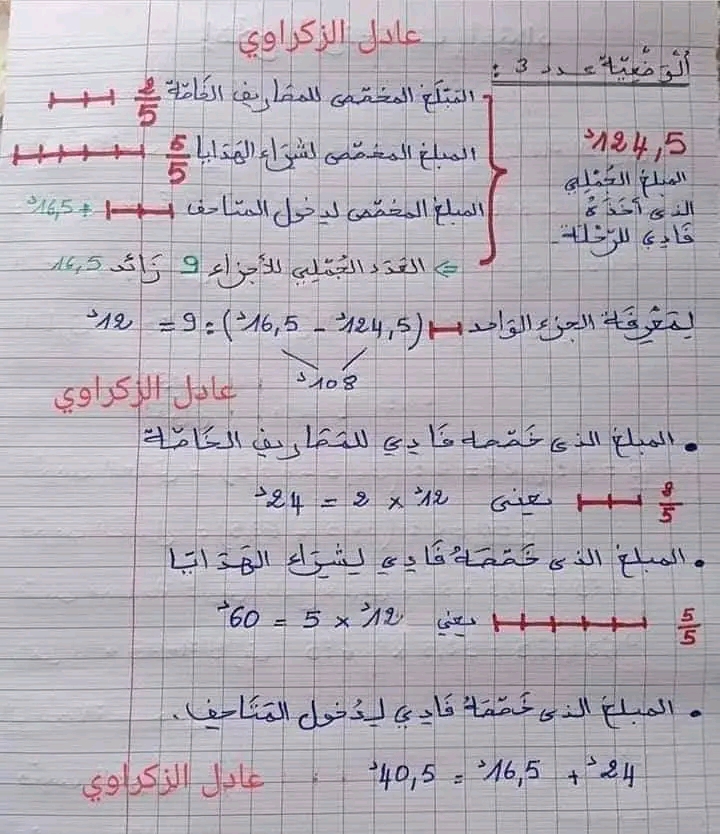 عادل الزكراوي
الْوَضْعِيّة عدد 3 :
124,5د
المبلغ الجُمْلِي
الذي أخَذَهُ
فَادِي للرّحْلة.
المَبْلَغ المخصّص للمصاريف الخَاصّة 2/5
المبلغ المخصّص لشِرَاء الهَدَايا 5/5
المبلغ المخصّص لدخول المتاحف + 16,5د
⇐ العَدَد الجُمْلِي للأجزاء 9 زَائد 16,5
لِمَعْرِفَة الجزء الوَاحد (124,5د - 16,5د) : 9 = 12د
108د
عادل الزكراوي
• المبلغ الذي خَصّصه فَادِي للمَصَاريف الخَاصّة
2/5 يعني 12د × 2 = 24د
• المبلغ الذي خَصّصَهُ فَادِي لِشِرَاء الهَدَايَا
5/5 يعني 12د × 5 = 60د
• المبلغ الذي خَصّصَهُ فَادِي لِدُخول المَتَاحِف.
24د + 16,5د = 40,5د
عادل الزكراوي